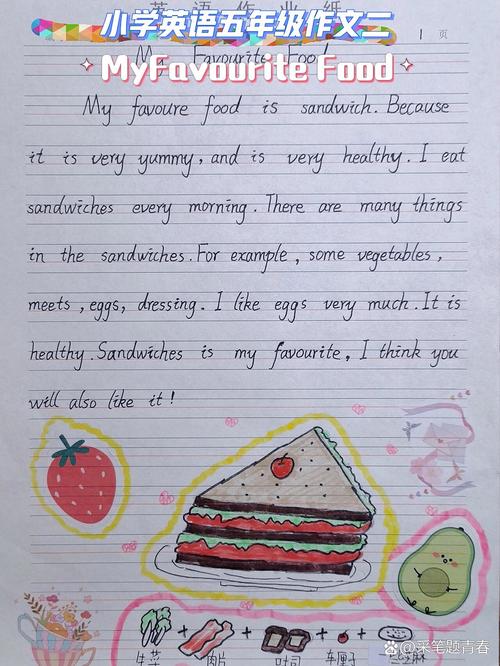 英语作业纸
小学英语五年级作文二
1 页
My Favourite Food
MyFavourite Food
My favoure food is sandwich. Because
it is very yummy, and is very healthy. I eat
sandwiches every morning. There are many things
in the sandwiches. For example, some vegetables,
meets, eggs, dressing. I like eggs very much. It is
healthy. Sandwiches is my favourite, I think you
will also like it!
生菜 肉片 吐司 车厘子
采笔题青春